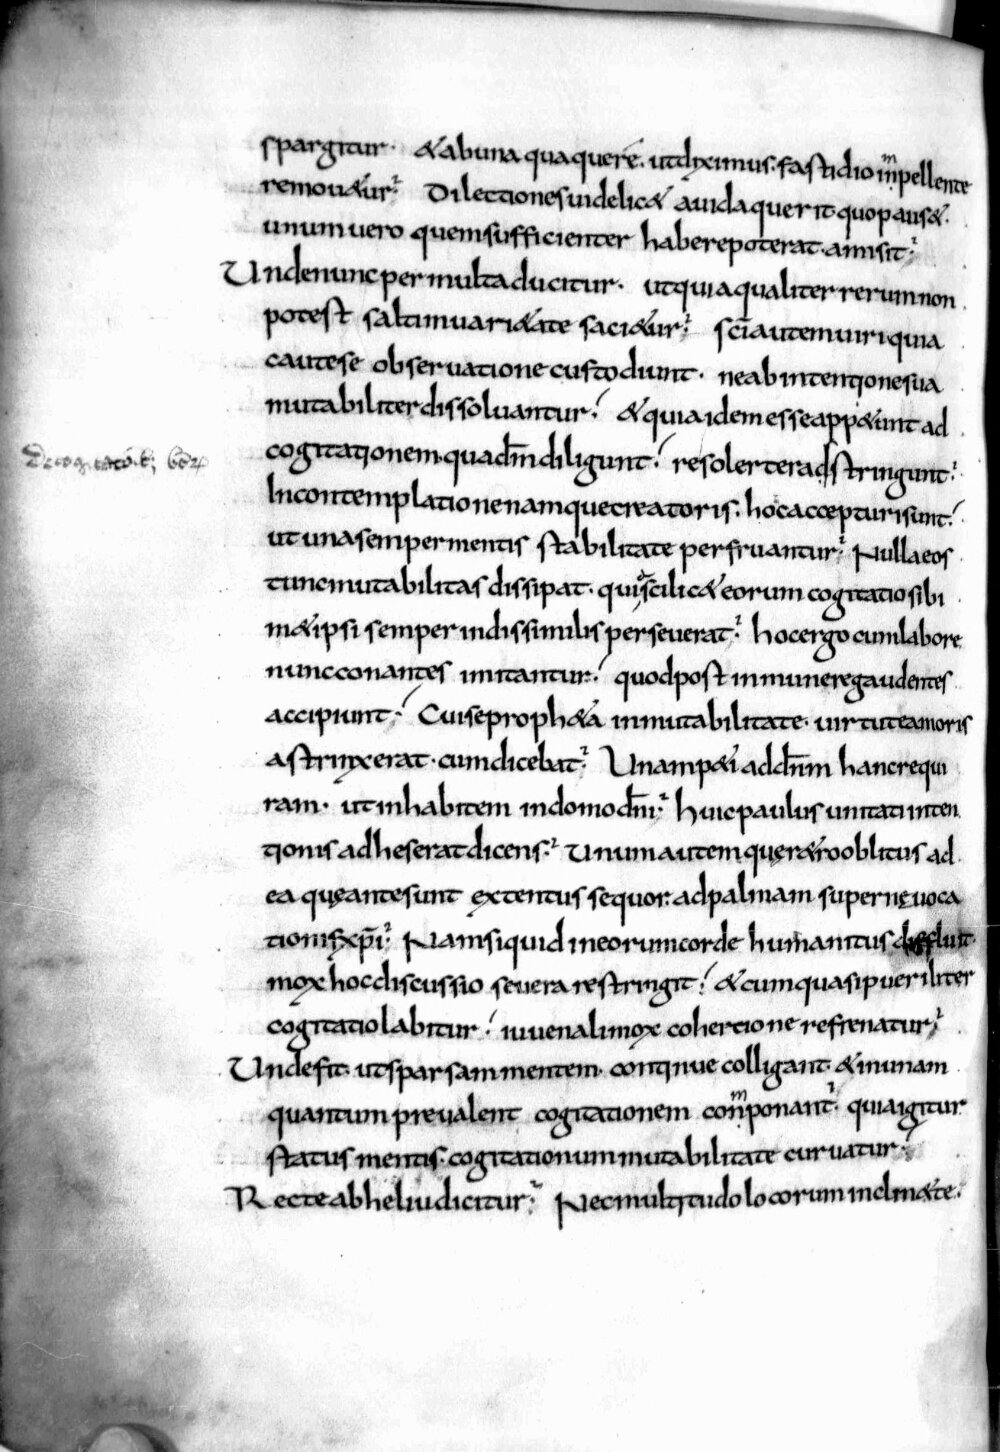 spargitur· & ab una qua querere· ut diximus· fastidio inpellente
remou&ur· Dilectiones uidelic& auida querit quo paus&·
unum uero quem sufficienter habere poterat· amisit·
Unde nunc per multa ducitur· ut quia qualiter rerum non
potest saltim uari&ate saci&ur· sc̄i autem uiri quia
caute se obseruatione custodiunt· ne ab intentione sua
mutabiliter dissoluantur· & quia idem esse app&unt ad
cogitationem quad̄m diligunt· re solerter adstringunt·
In contemplatione namque creatoris· hoc accepturi sunt·
ut una semper mentis stabilitate perfruantur· Nulla eos
tunc mutabilitas dissipat· quia scilic& eorum cogitatio sibi
m&ipsi semper indissimilis perseuerat· hoc ergo cum labore
nunc conantes imitantur· quod post in munere gaudentes
accipiunt· Cui se proph&a inmutabilitate· uirtute amoris
astrinxerat· cum dicebat· Unam p&i a dn̄o hanc requi
ram· ut inhabitem in domo dn̄i· huic paulus unitati inten
tionis adheserat dicens· Unum autem quero oblitus ad
ea quę ante sunt extentus sequor· ad palmam supernę uoca
tionis xp̄i· Nam si quid in eorum corde humanitus diffluit·
mox hoc discussio seuera restringit· & cum quasi pueriliter
cogitatio labitur· iuuenali mox cohercione refrenatur·
Unde fit· ut sparsam mentem· continue colligant· & in unam
quantum preualent cogitationem conponant· quia igitur
status mentis· cogitationum mutabilitate curuatur·
Recte ab heliu dicitur· Nec multitudo locorum inclin& te·